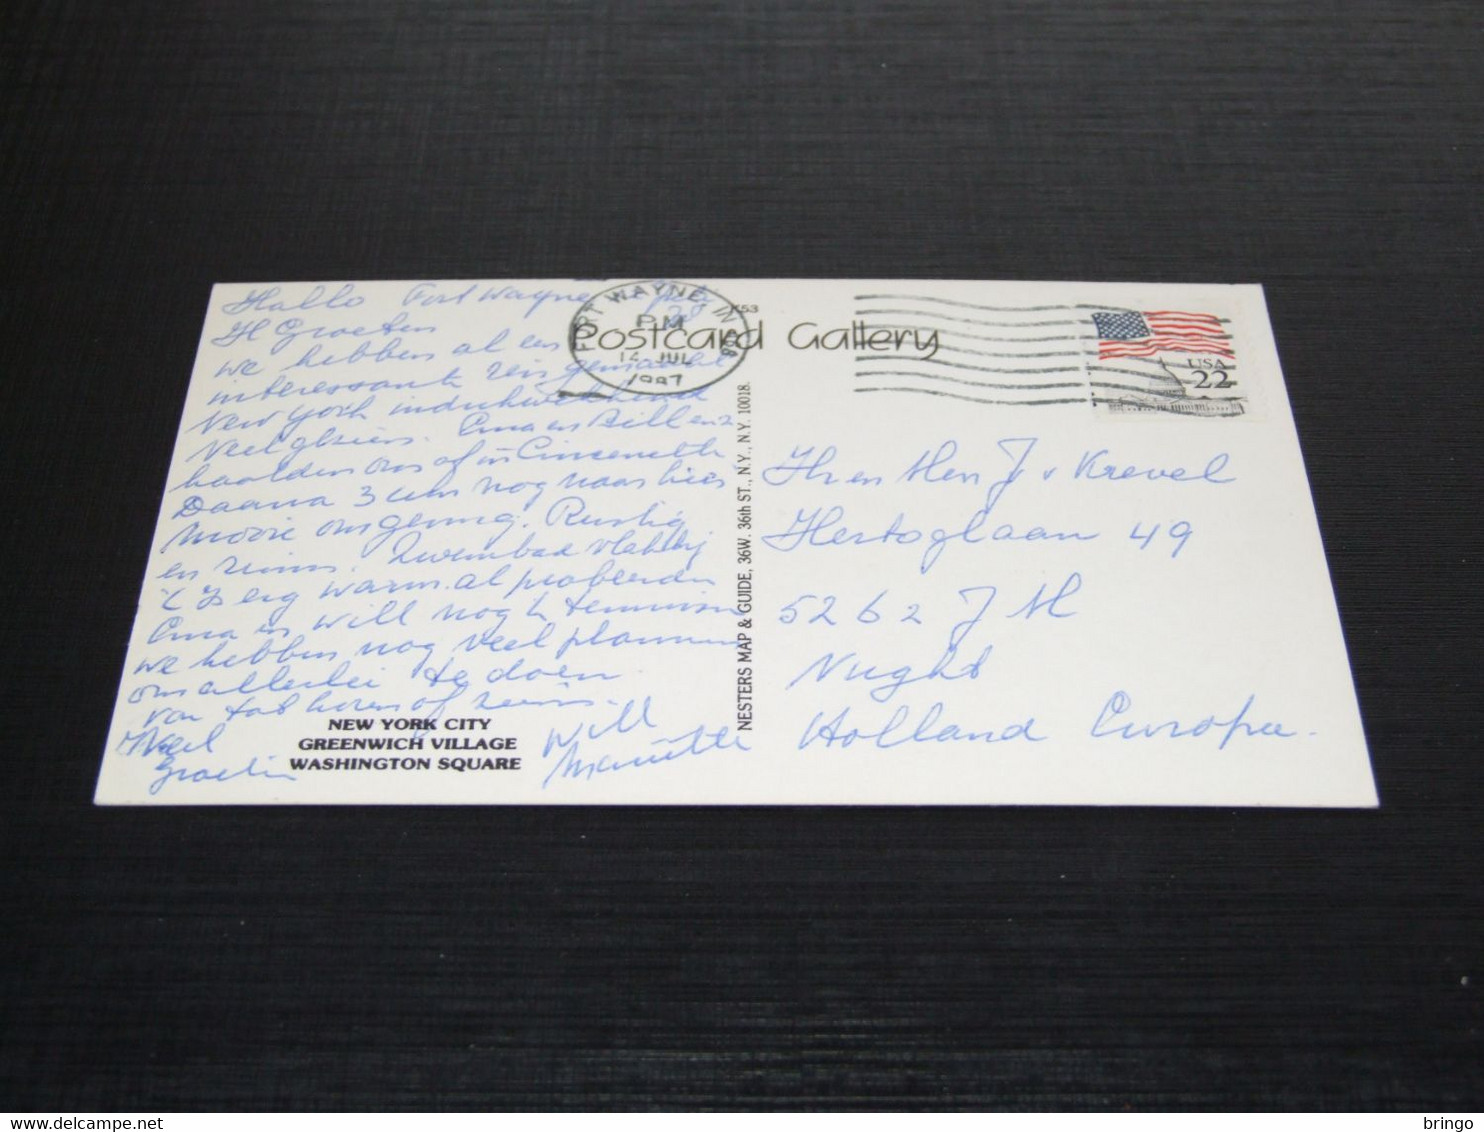 Hallo Fort Wayne
H Groeten
we hebben al een
interessante reis gemaakt
New York indrukwekkend
Veel gezien. Oma en Bill
haalden ons af in
Daarna 3 uur nog naar hier
mooie omgeving. Rustig
en ruim. Zwembad vlakbij
erg warm. al
Oma en Will nog te tennissen
we hebben nog veel plannen
om allerlei te doen
van
Veel
Groetin
Will
NEW YORK CITY
GREENWICH VILLAGE
WASHINGTON SQUARE
FORT WAYNE, IN 468
PM
14 JUL
Postcard Gallery
USA
22
NESTERS MAP & GUIDE, 36W. 36th ST., N.Y., N.Y. 10018.
Hr en Mev J v Krevel
Hertoglaan 49
5262 JH
Vught
Holland Europa.
delcampe.net
bringo